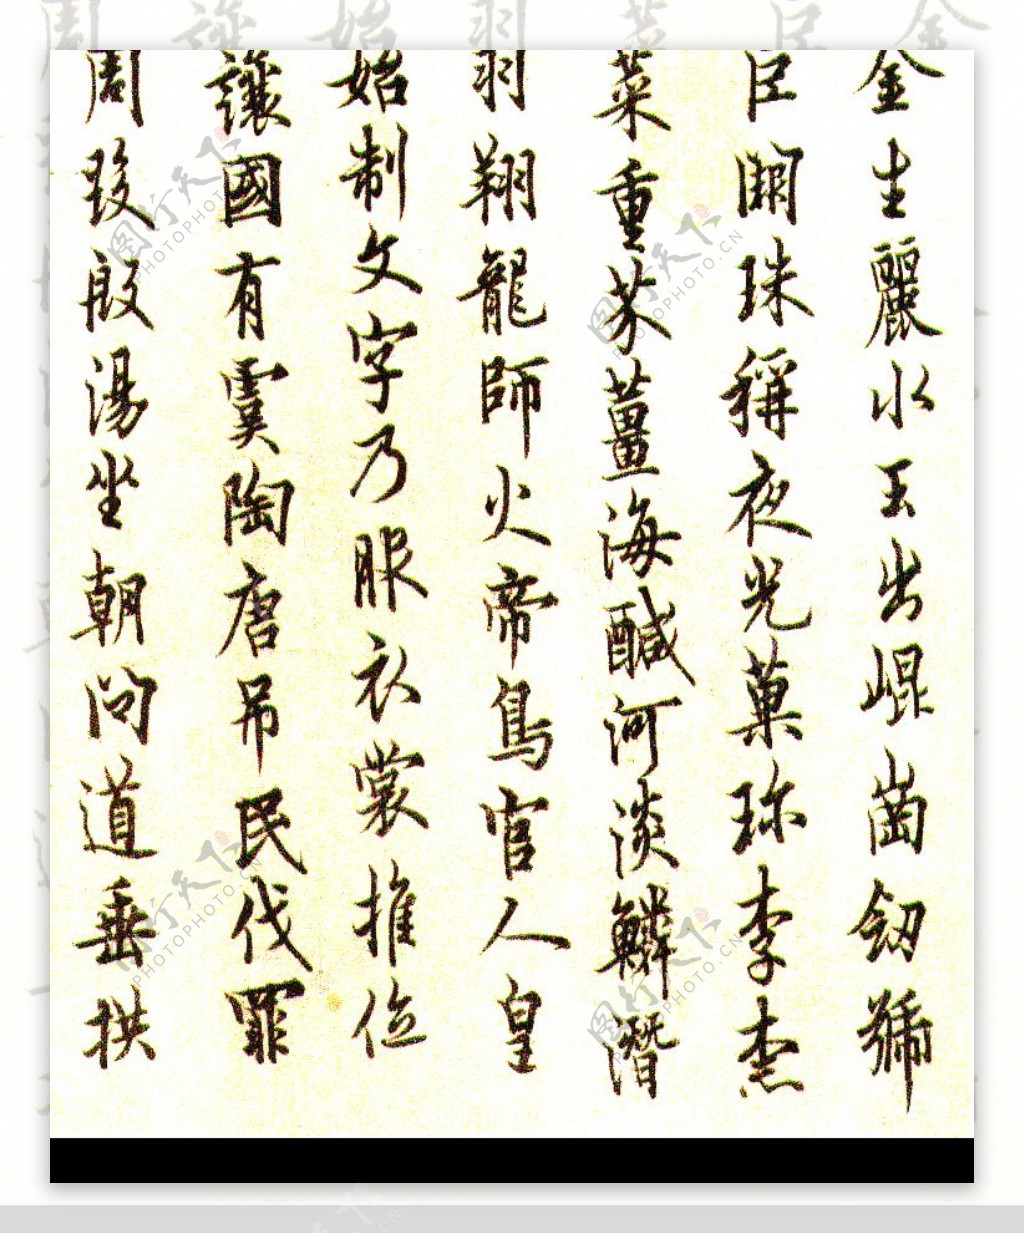 金生麗水玉出崐崗劒號
巨闕珠稱夜光菓珎李柰
菜重芥薑海醎河淡鱗潛
羽翔龍師火帝鳥官人皇
始制文字乃服衣裳推位
讓國有虞陶唐吊民伐罪
周發殷湯坐朝問道垂拱
图行天下
PHOTOPHOTO.CN
图行天下
PHOTOPHOTO.CN
图行天下
PHOTOPHOTO.CN
图行天下
PHOTOPHOTO.CN